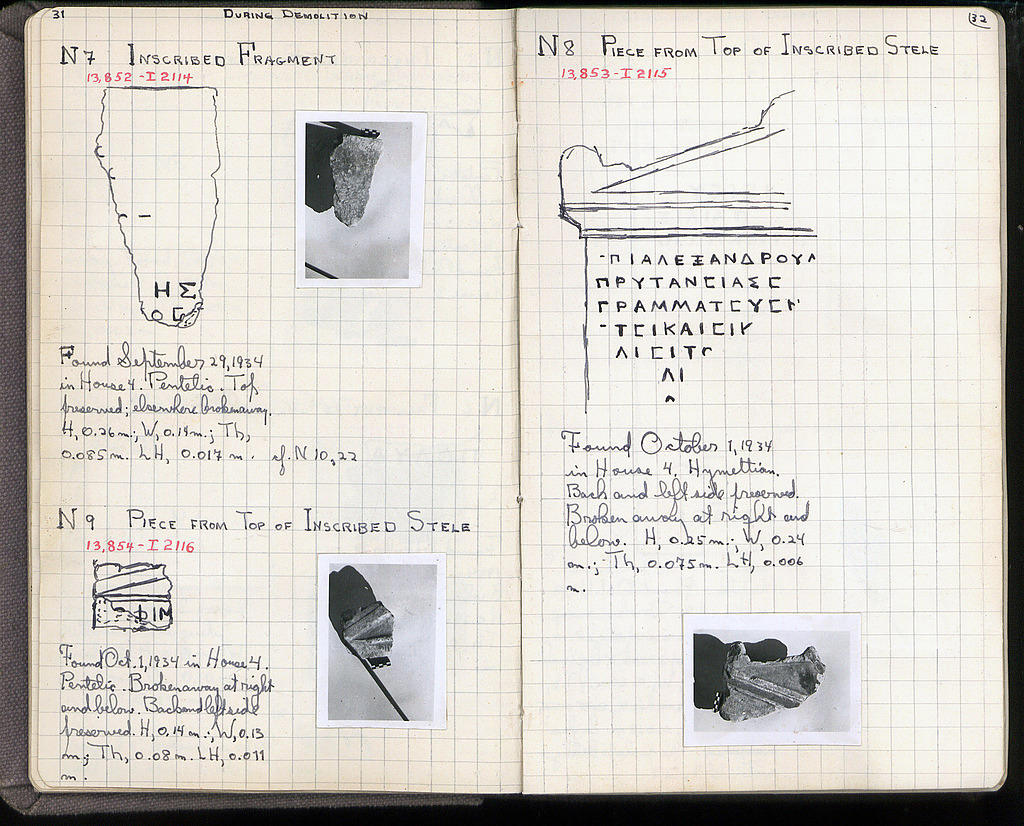 31
DURING DEMOLITION
N 7 INSCRIBED FRAGMENT
13,852 - I 2114
Η Σ
Ο
Found September 29, 1934
in House 4. Pentelic. Top
preserved; elsewhere broken away.
H, 0.26 m.; W, 0.14 m.; Th,
0.085 m. LH, 0.017 m. cf. N 10, 22
N 9 PIECE FROM TOP OF INSCRIBED STELE
13,854 - I 2116
ΦΙΜ
Found Oct. 1, 1934 in House 4.
Pentelic. Broken away at right
and below. Back and left side
preserved. H, 0.14 m.; W, 0.13
m.; Th, 0.08 m. LH, 0.011
m.
32
N 8 PIECE FROM TOP OF INSCRIBED STELE
13,853 - I 2115
ΠΙΑΛΕΞΑΝΔΡΟΥΛ
ΠΡΥΤΑΝΕΙΑΣΕ
ΓΡΑΜΜΑΤΕΥΕΝ
ΤΕΙΚΑΙΕΙΚ
ΛΙΕΙΤΟ
ΛΙ
Found October 1, 1934
in House 4. Hymettian.
Back and left side preserved.
Broken away at right and
below. H, 0.25 m.; W, 0.24
m.; Th, 0.075 m. LH, 0.006
m.